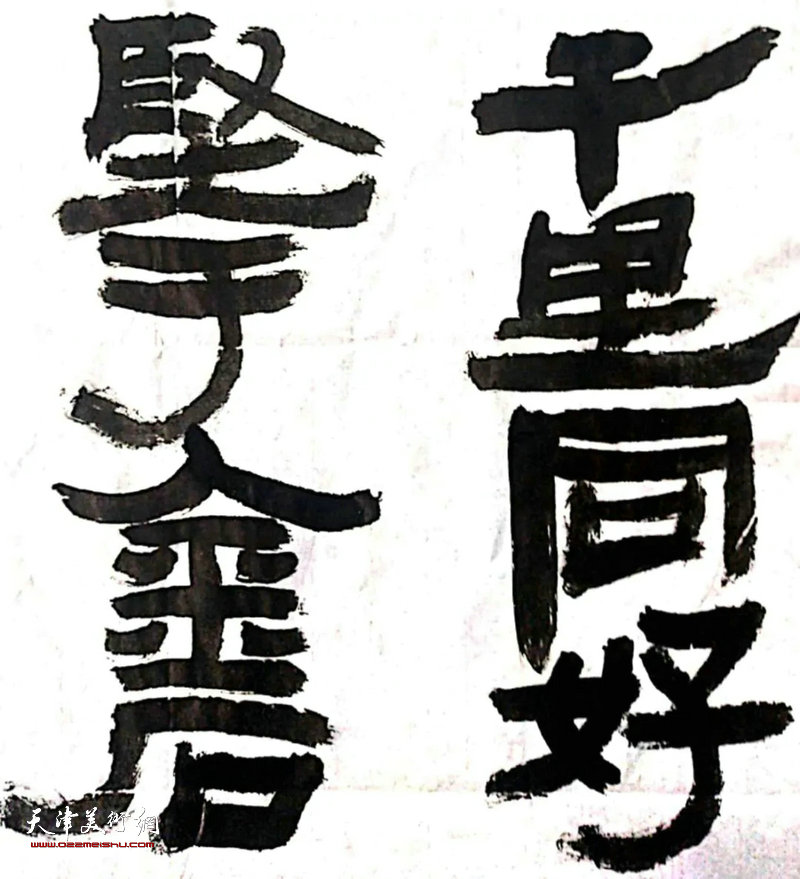 千里同好
堅于金石
天津美术网
www.022meishu.com